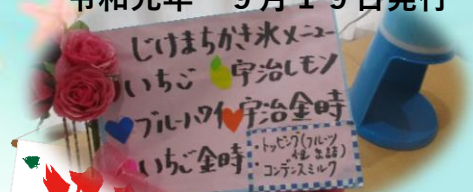 令和元年　９月１９日発行
じけまちかき氷メニュー
いちご　宇治レモン
ブルーハワイ　宇治金時
いちご金時
・トッピング(フルーツ
・コンデンスミルク